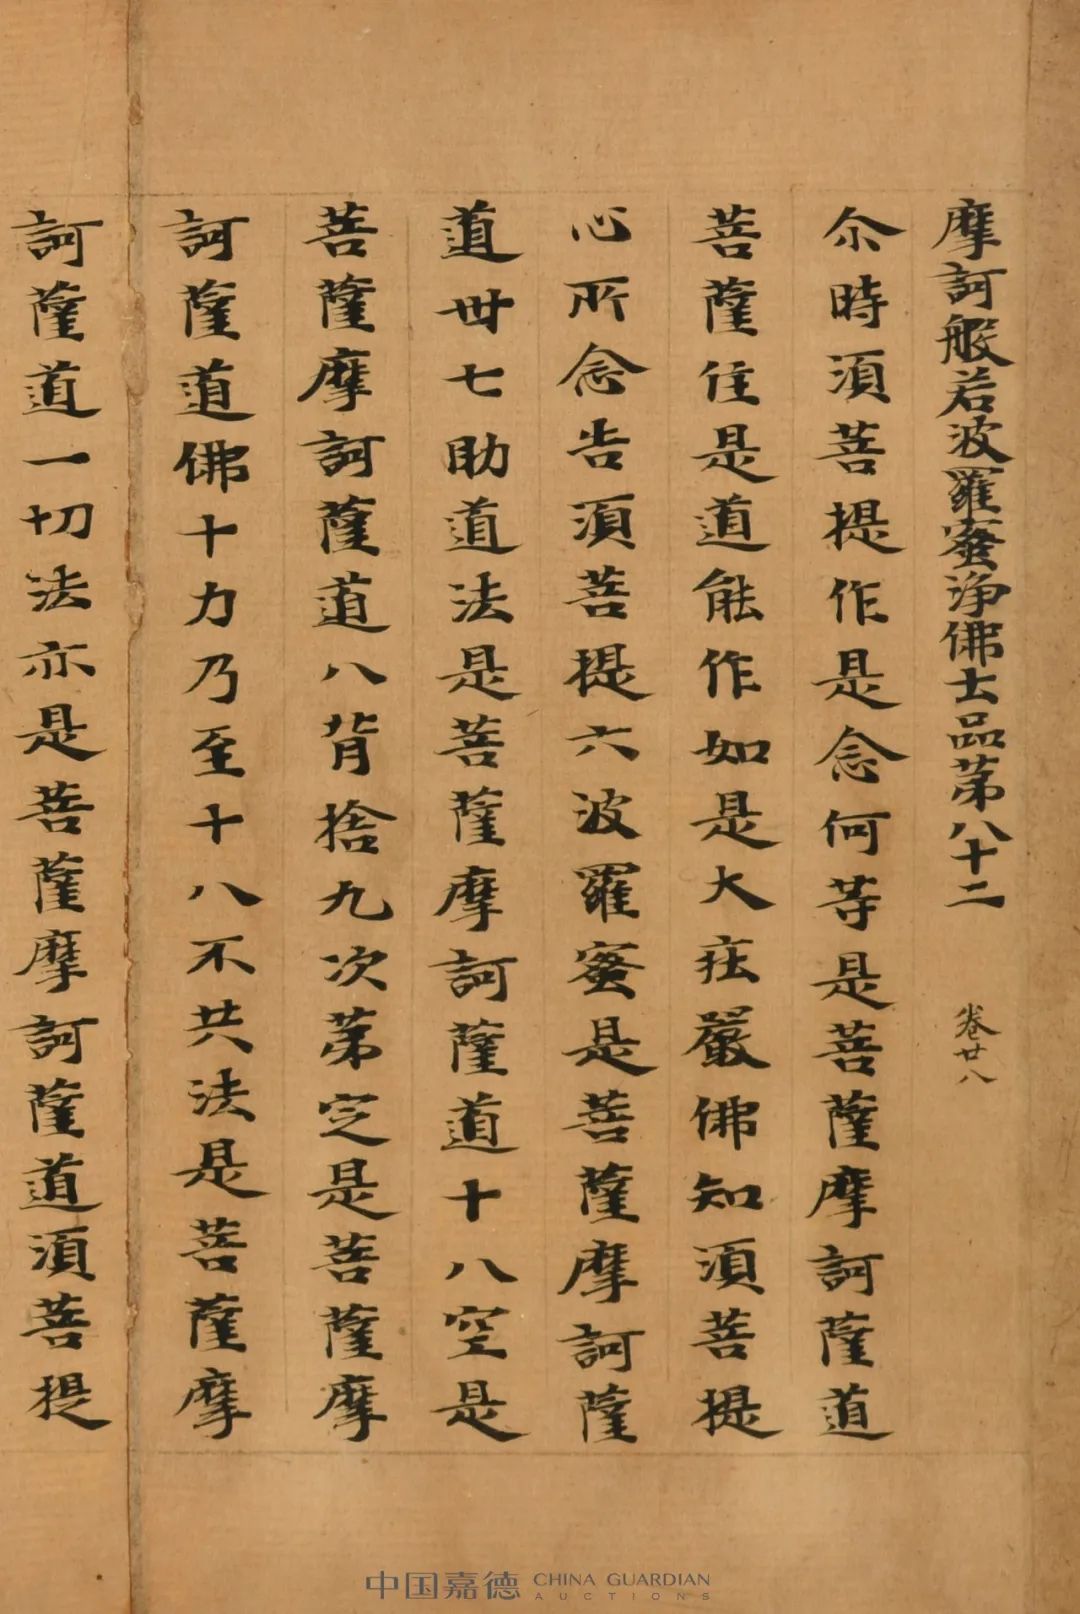 摩訶般若波羅蜜淨佛士品苐八十二 卷廿八
尒時須菩提作是念何等是菩薩摩訶薩道
菩薩住是道能作如是大莊嚴佛知須菩提
心所念告須菩提六波羅蜜是菩薩摩訶薩
道丗七助道法是菩薩摩訶薩道十八空是
菩薩摩訶薩道八背捨九次苐定是菩薩摩
訶薩道佛十力乃至十八不共法是菩薩摩
訶薩道一切法亦是菩薩摩訶薩道須菩提
中国嘉德 CHINA GUARDIAN
AUCTIONS